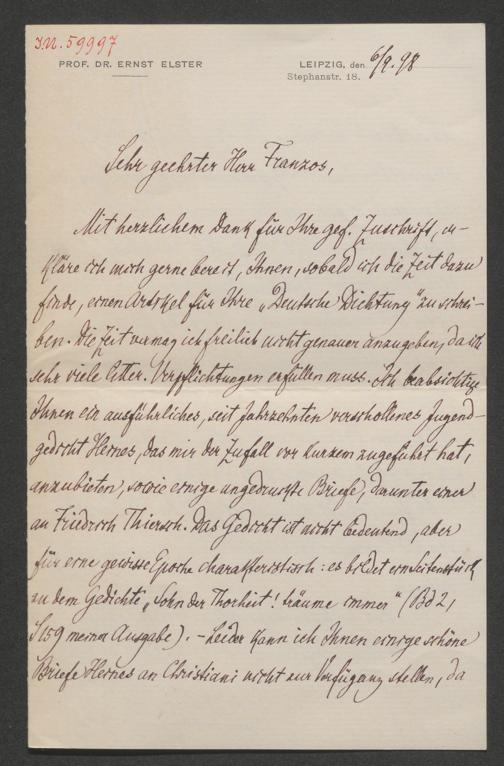 J.N. 59997
PROF. DR. ERNST ELSTER
LEIPZIG, den 6/9. 98
Stephanstr. 18.
Sehr geehrter Herr Franzos,
Mit herzlichem Dank für Ihre gef. Zuschrift, er-
kläre ich mich gerne bereit, Ihnen, sobald ich die Zeit dazu
finde, einen Artikel für Ihre „Deutsche Dichtung" zu schrei-
ben. Die Zeit vermag ich freilich nicht genauer anzugeben, da ich
sehr viele litter. Verpflichtungen erfüllen muss. Ich beabsichtige
Ihnen ein ausführliches, seit Jahrzehnten verschollenes Jugend-
gedicht Heines, das mir der Zufall vor kurzem zugeführt hat,
anzubieten, sowie einige ungedruckte Briefe, darunter einer
an Friedrich Thiersch. Das Gedicht ist nicht bedeutend, aber
für eine gewisse Epoche charakteristisch: es bildet ein Seitenstück
zu dem Gedichte „Sohn der Thorheit! träume immer" (Bd 2,
S 159 meiner Ausgabe). – Leider kann ich Ihnen einige schöne
Briefe Heines an Christiani nicht zur Verfügung stellen, da